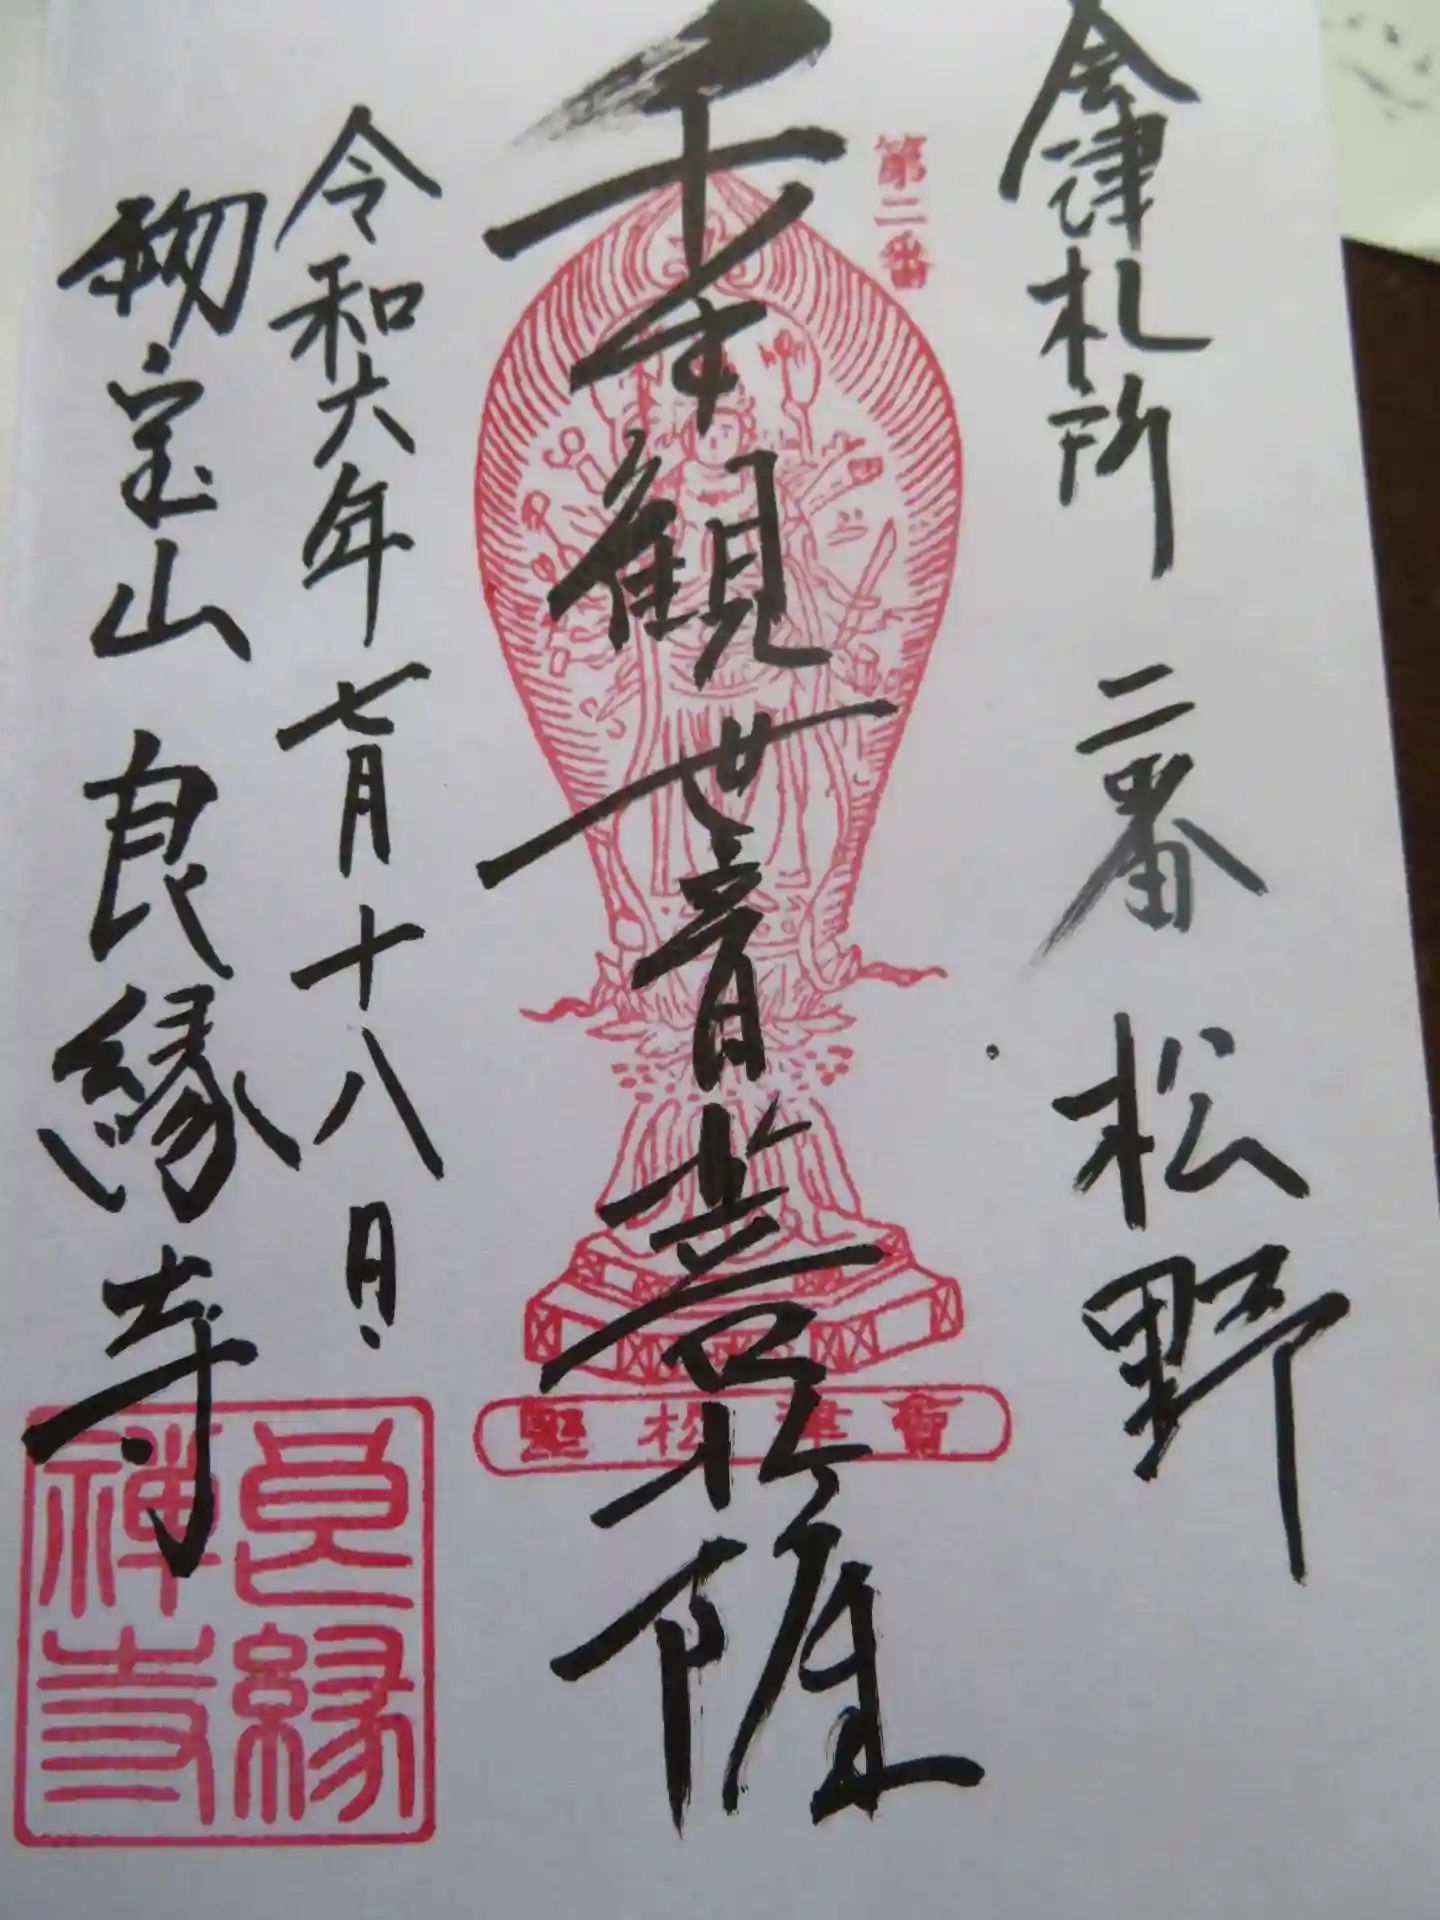 会津札所 二番 松野
第二番
千手観世音菩薩
會津松
令和六年七月十八日
物宝山 良縁寺
良縁
禅寺